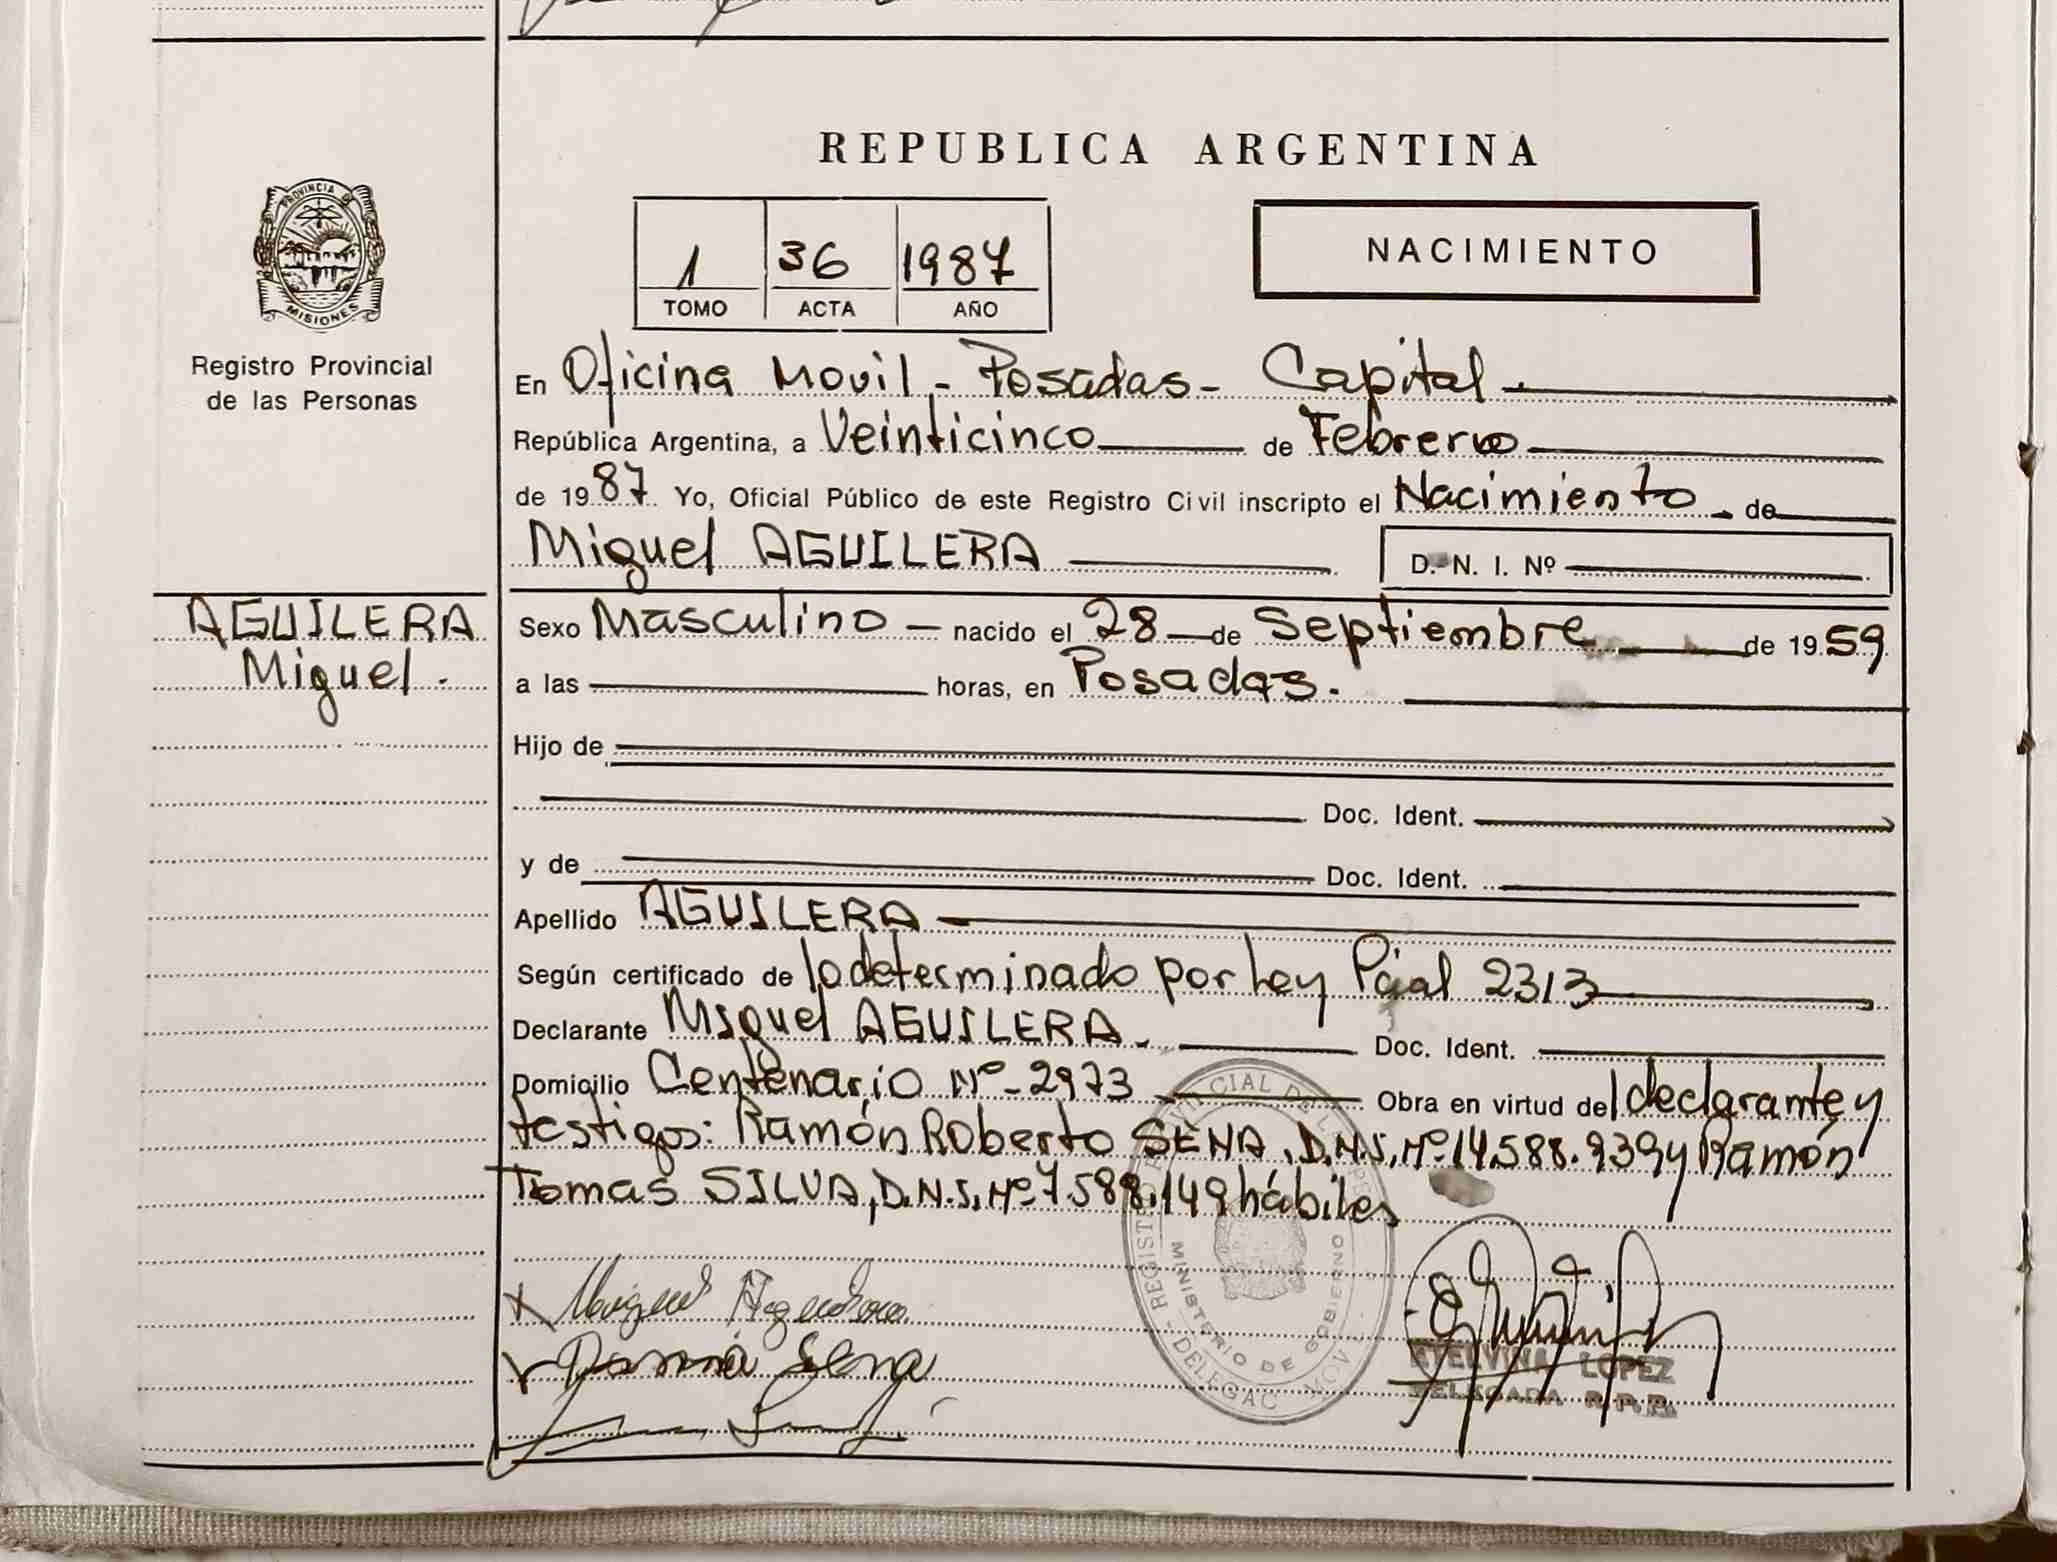 REPUBLICA ARGENTINA
PROVINCIA DE MISIONES
Registro Provincial
de las Personas
1 36 1987
TOMO ACTA AÑO
NACIMIENTO
En Oficina Movil - Posadas - Capital.
República Argentina, a Veinticinco de Febrero
de 1987 Yo, Oficial Público de este Registro Civil inscripto el Nacimiento de
Miguel AGUILERA D. N. I. Nº
AGUILERA
Miguel.
Sexo Masculino nacido el 28 de Septiembre de 1959
a las horas, en Posadas.
Hijo de
Doc. Ident.
y de Doc. Ident.
Apellido AGUILERA
Según certificado de lo determinado por Ley Pcial 2313
Declarante Miguel AGUILERA. Doc. Ident.
Domicilio Centenario Nº 2973 Obra en virtud del declarante y
testigos: Ramón Roberto SENA, D.N.I. Nº 14.588.939 y Ramón
Tomas SILVA, D.N.I. Nº 7.588.149 hábiles
Miguel Aguilera
Sena
MINISTERIO DE GOBIERNO
ETELVINA LOPEZ
DELEGADA R.P.P.